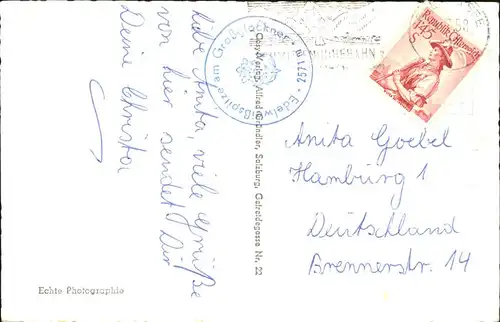 Liebe Anita, viele Grüße
von hier sendet Dir
Deine Christa
Edelweißspitze am Großglockner 2571 m
Copy Verlag, Alfred Gründler, Salzburg, Getreidegasse Nr. 22
Republik Österreich
1.45
S
Anita Goebel
Hamburg 1
Deutschland
Brennerstr. 14
Echte Photographie